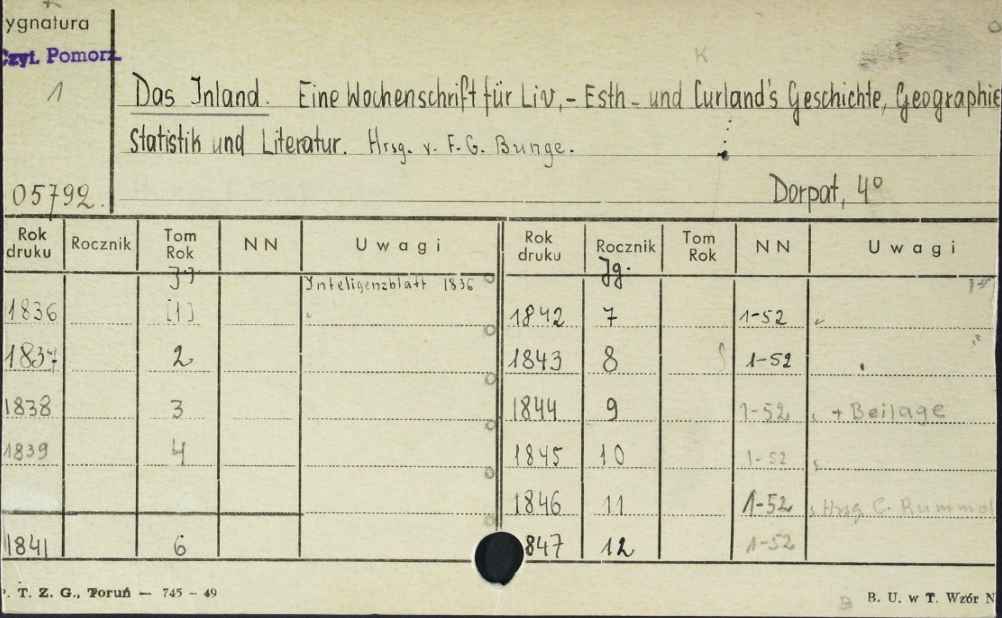 ygnatura
Czyt. Pomorz.
K
1
Das Inland. Eine Wochenschrift für Liv,- Esth- und Curland's Geschichte, Geographie
Statistik und Literatur. Hrsg. v. F. G. Bunge.
05792.
Dorpat, 4°
Rok druku Rocznik Tom Rok NN Uwagi Rok druku Rocznik Tom Rok NN Uwagi
Jg. Inteligenzblatt 1836 Jg.
1836 [1] 1842 7 1-52
1837 2 1843 8 1-52
1838 3 1844 9 1-52 + Beilage
1839 4 1845 10 1-52
1846 11 1-52 Hrsg C. Rummel
1841 6 847 12 1-52
. T. Z. G., Toruń — 745 - 49
B B. U. w T. Wzór N